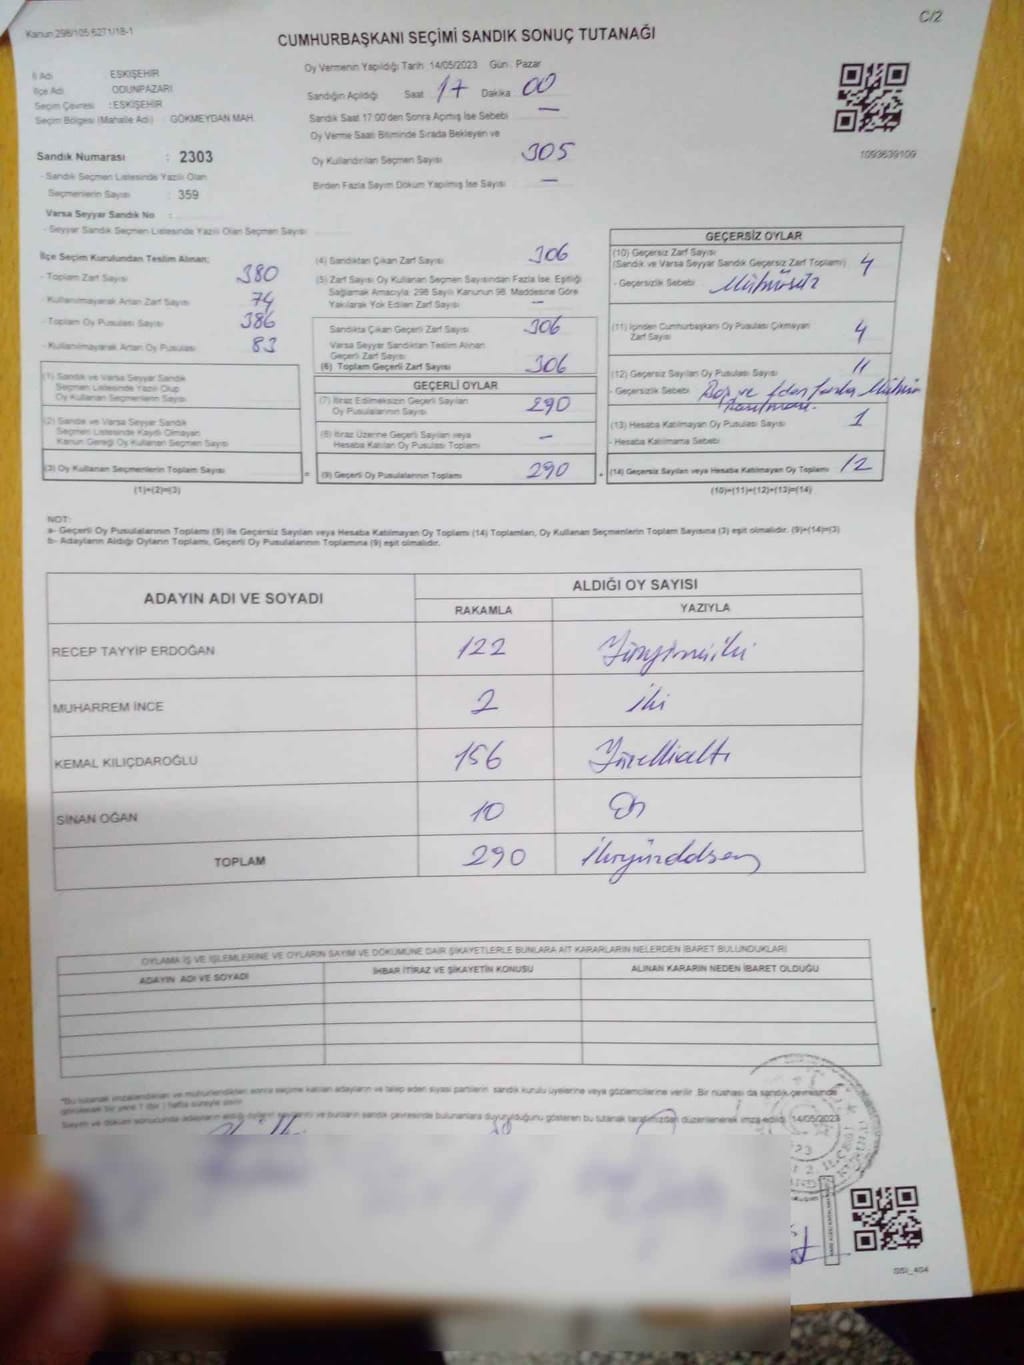 Kanun:298/105 6271/18-1
C/2
CUMHURBAŞKANI SEÇİMİ SANDIK SONUÇ TUTANAĞI
İl Adı ESKİŞEHİR
İlçe Adı ODUNPAZARI
Seçim Çevresi : ESKİŞEHİR
Seçim Bölgesi (Mahalle Adı) : GÖKMEYDAN MAH.
Sandık Numarası : 2303
- Sandık Seçmen Listesinde Yazılı Olan
Seçmenlerin Sayısı : 359
Varsa Seyyar Sandık No :
- Seyyar Sandık Seçmen Listesinde Yazılı Olan Seçmen Sayısı :
Oy Vermenin Yapıldığı Tarih 14/05/2023 Gün : Pazar
Sandığın Açıldığı Saat 17 Dakika 00
Sandık Saat 17:00'den Sonra Açılmış İse Sebebi —
Oy Verme Saati Bitiminde Sırada Bekleyen ve
Oy Kullandırılan Seçmen Sayısı 305
Birden Fazla Sayım Döküm Yapılmış İse Sayısı —
1093639109
İlçe Seçim Kurulundan Teslim Alınan:
- Toplam Zarf Sayısı 380
- Kullanılmayarak Artan Zarf Sayısı 74
- Toplam Oy Pusulası Sayısı 386
- Kullanılmayarak Artan Oy Pusulası 83
(1) Sandık ve Varsa Seyyar Sandık
Seçmen Listesinde Yazılı Olup
Oy Kullanan Seçmenlerin Sayısı
(2) Sandık ve Varsa Seyyar Sandık
Seçmen Listesinde Kayıtlı Olmayan
Kanun Gereği Oy Kullanan Seçmen Sayısı
(3) Oy Kullanan Seçmenlerin Toplam Sayısı
(1)+(2)=(3)
(4) Sandıktan Çıkan Zarf Sayısı 306
(5) Zarf Sayısı Oy Kullanan Seçmen Sayısından Fazla İse, Eşitliği
Sağlamak Amacıyla; 298 Sayılı Kanunun 98. Maddesine Göre
Yakılarak Yok Edilen Zarf Sayısı —
Sandıkta Çıkan Geçerli Zarf Sayısı 306
Varsa Seyyar Sandıktan Teslim Alınan
Geçerli Zarf Sayısı
(6) Toplam Geçerli Zarf Sayısı 306
GEÇERLİ OYLAR
(7) İtiraz Edilmeksizin Geçerli Sayılan
Oy Pusulalarının Sayısı 290
(8) İtiraz Üzerine Geçerli Sayılan veya
Hesaba Katılan Oy Pusulası Toplamı —
= (9) Geçerli Oy Pusulalarının Toplamı 290 +
GEÇERSİZ OYLAR
(10) Geçersiz Zarf Sayısı
(Sandık ve Varsa Seyyar Sandık Geçersiz Zarf Toplamı) 4
- Geçersizlik Sebebi Mühürsüz
(11) İçinden Cumhurbaşkanı Oy Pusulası Çıkmayan
Zarf Sayısı 4
(12) Geçersiz Sayılan Oy Pusulası Sayısı 11
- Geçersizlik Sebebi ve fazla Mühür
(13) Hesaba Katılmayan Oy Pusulası Sayısı 1
- Hesaba Katılmama Sebebi
(14) Geçersiz Sayılan veya Hesaba Katılmayan Oy Toplamı 12
(10)+(11)+(12)+(13)=(14)
NOT:
a- Geçerli Oy Pusulalarının Toplamı (9) ile Geçersiz Sayılan veya Hesaba Katılmayan Oy Toplamı (14) Toplamları, Oy Kullanan Seçmenlerin Toplam Sayısına (3) eşit olmalıdır. (9)+(14)=(3)
b- Adayların Aldığı Oyların Toplamı, Geçerli Oy Pusulalarının Toplamına (9) eşit olmalıdır.
ADAYIN ADI VE SOYADI
ALDIĞI OY SAYISI
RAKAMLA YAZIYLA
RECEP TAYYİP ERDOĞAN 122 Yüzyirmiiki
MUHARREM İNCE 2 iki
KEMAL KILIÇDAROĞLU 156 Yüzellialtı
SİNAN OĞAN 10 On
TOPLAM 290 ikiyüzdoksan
OYLAMA İŞ VE İŞLEMLERİNE VE OYLARIN SAYIM VE DÖKÜMÜNE DAİR ŞİKAYETLERLE BUNLARA AİT KARARLARIN NELERDEN İBARET BULUNDUKLARI
ADAYIN ADI VE SOYADI İHBAR İTİRAZ VE ŞİKAYETİN KONUSU ALINAN KARARIN NEDEN İBARET OLDUĞU
"Bu tutanak imzalandıktan ve mühürlendikten sonra seçime katılan adayların ve talep eden siyasi partilerin sandık kurulu üyelerine veya gözlemcilerine verilir. Bir nüshası da sandık çevresinde
görülecek bir yere 1 (bir) hafta süreyle asılır.
Sayım ve döküm sonucunda adayların aldığı oyların sayılarını ve bunların sandık çevresinde bulunanlara duyurulduğunu gösteren bu tutanak tarafımızdan düzenlenerek imza edildi. 14/05/2023
GSI_404